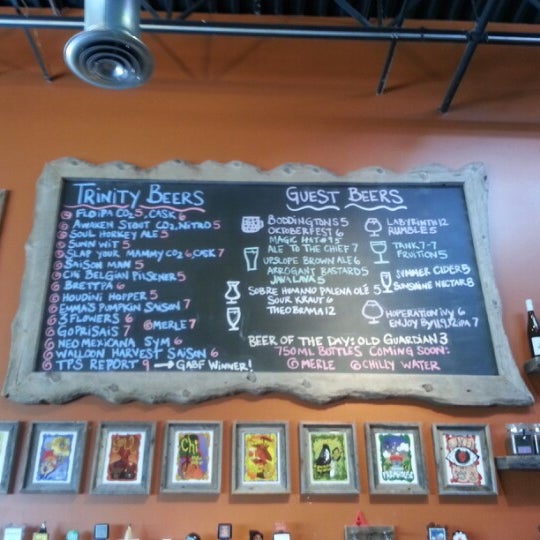 TRINITY BEERS
FLO IPA CO2 5, CASK 6
AWAKEN STOUT CO2, NITRO 5
SOUL HORKEY ALE 5
SUNN WIT 5
SLAP YOUR MAMMY CO2 6, CASK 7
SAISON MAN 5
CHI BELGIAN PILSENER 5
BRETTPA 6
HOUDINI HOPPER 5
EMMA'S PUMPKIN SAISON 7
3 FLOWERS 6
GOPRISAIS 7 MERLE 7
NEO MEXICANA SYM 6
WALLOON HARVEST SAISON 6
TPS REPORT 9 → GABF WINNER!
GUEST BEERS
BODDINGTONS 5
OKTOBERFEST 6
MAGIC HAT #9 5
ALE TO THE CHIEF 7
UPSLOPE BROWN ALE 6
ARROGANT BASTARD 5
JAVALAVA 5
SOBRE HUMANO PALENA OLE 5
SOUR KRAUT 6
THEOBRAMA 12
LABYRINTH 12
RUMBLE 5
TANK 7-7
FRUITION 5
SUMMER CIDER 5
SUNSHINE NECTAR 8
HOPERATION IVY 6
ENJOY BY
BEER OF THE DAY: OLD GUARDIAN 3
750ML BOTTLES COMING SOON:
MERLE CHILLY WATER
Chi